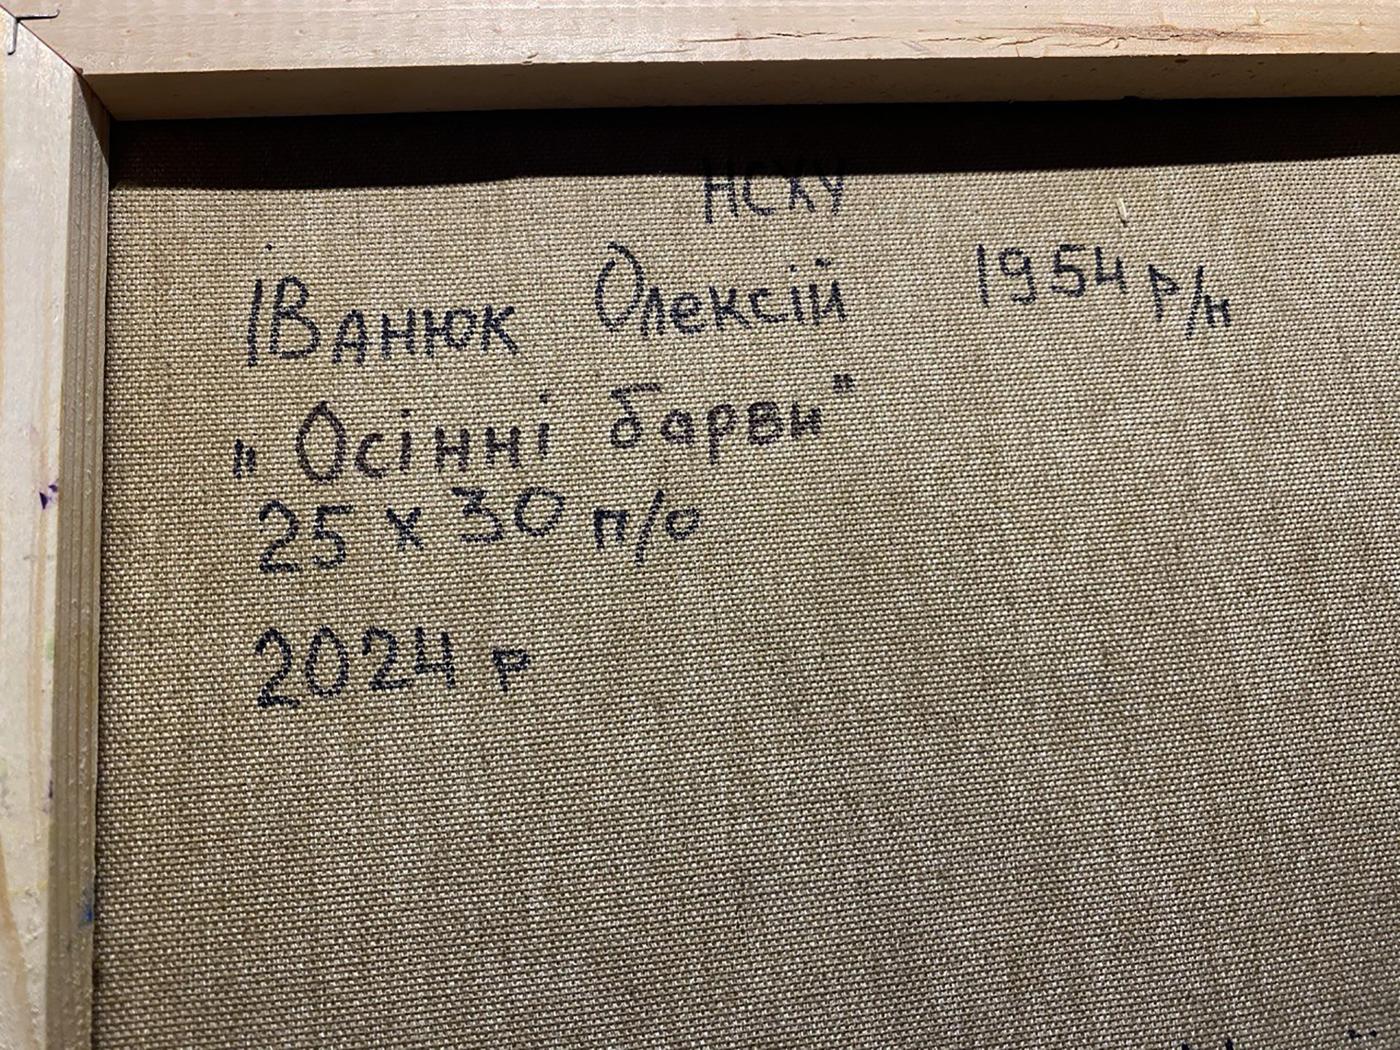 НСХУ
Іванюк Олексій 1954 р/н
"Осінні барви"
25 х 30 п/о
2024 р